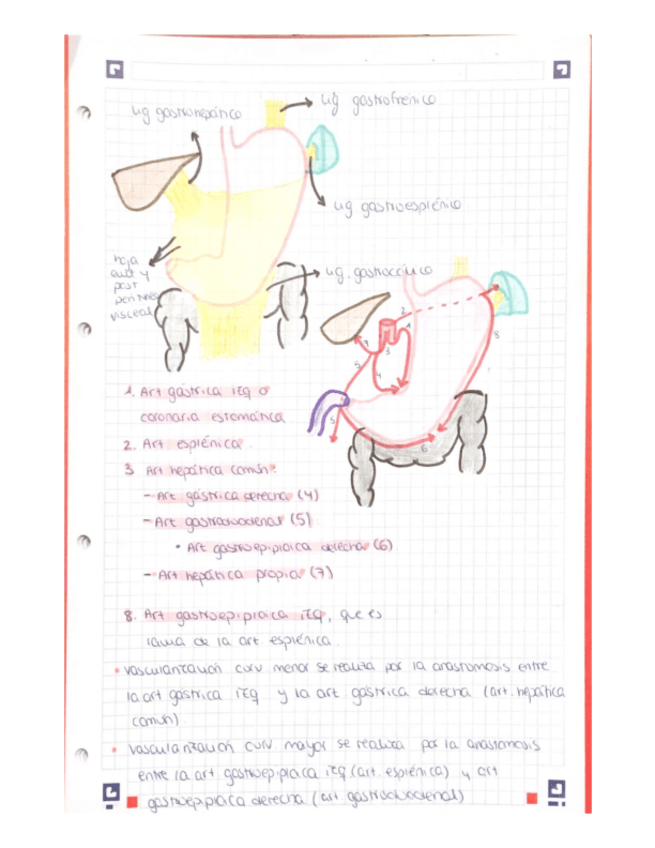 lig gastrohepático
lig gastrofrénico
lig gastroesplénico
hoja
ant y
post
peritoneo
visceral
lig. gastrocólico
2
1
3
7
5
4
8
5
6
1. Art gástrica izq o
coronaria estomática
2. Art esplénica.
3 Art hepática común:
- Art gástrica derecha (4)
- Art gastroduodenal (5)
• Art gastroepiploica derecha (6)
- Art hepática propia (7)
8. Art gastroepiploica izq, que es
rama de la art esplénica.
• vascularización curv menor se realiza por la anastomosis entre
la art gástrica izq y la art gástrica derecha (art. hepática
común)
• vascularización curv. mayor se realiza por la anastomosis
entre la art gastroepiploica izq (art. esplénica) y art
gastroepiploica derecha (art gastroduodenal)